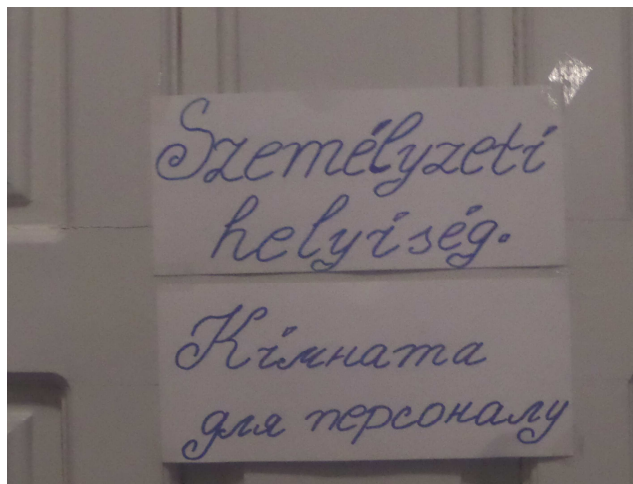 Személyzeti
helyiség.
Кімната
для персоналу